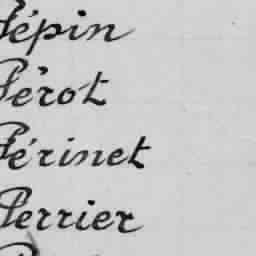 Pépin
Pérot
Périnet
Perrier